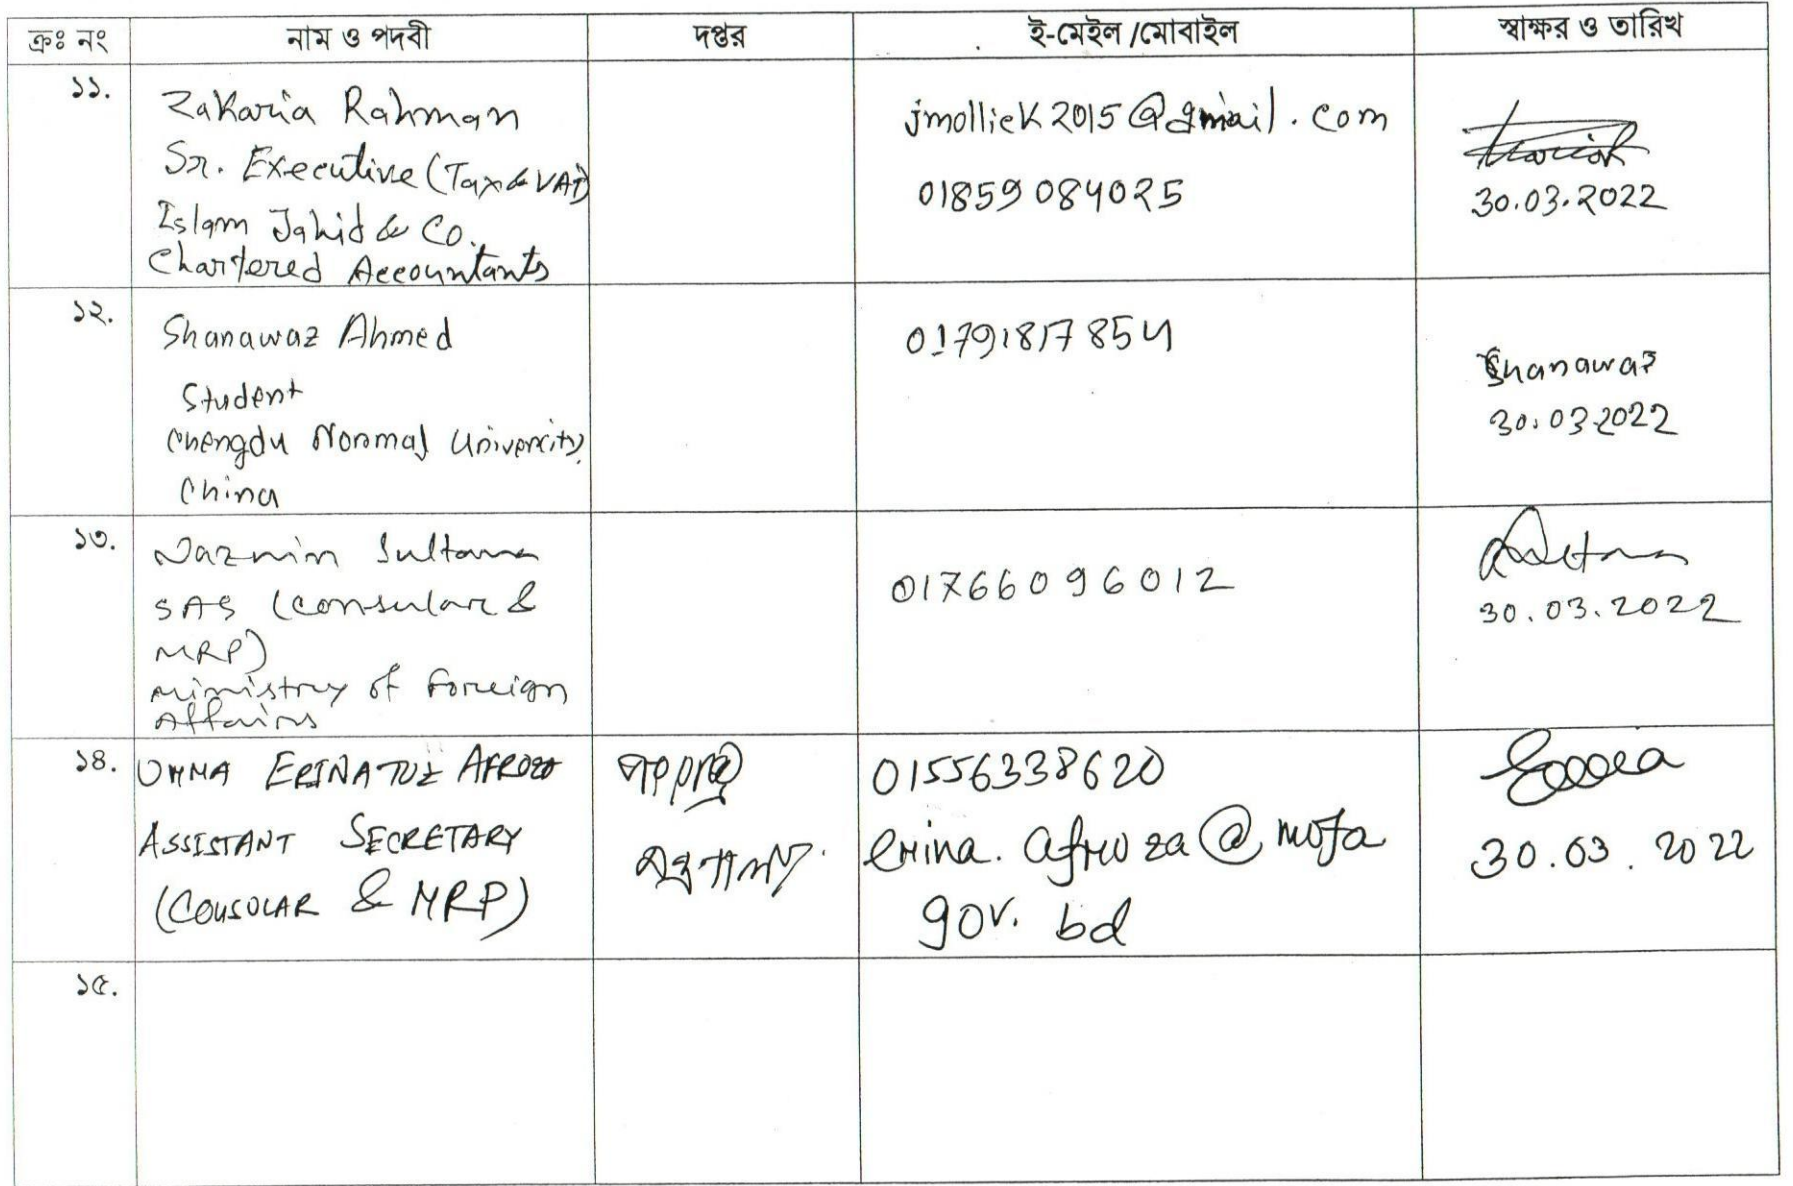 ক্রঃ নং নাম ও পদবী দপ্তর ই-মেইল /মোবাইল স্বাক্ষর ও তারিখ
১১.
Zakaria Rahman
Sr. Executive (Tax & VAT)
Islam Jahid & Co.
Chartered Accountants
jmolliek2015@gmail.com
01859084025
30.03.2022
১২.
Shanawaz Ahmed
Student
Chengdu Normal University,
China
01791817854
Shanawaz
30.03.2022
১৩.
Naznin Sultana
SAS (Consular &
MRP)
Ministry of Foreign
Affairs
01766096012
30.03.2022
১৪.
UMMA ERINATUZ AFROZA
ASSISTANT SECRETARY
(CONSULAR & MRP)
01556338620
erina.afroza@mofa
gov.bd
30.03.2022
১৫.